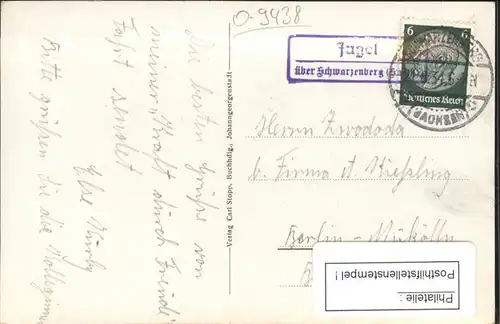 O-9438
Jugel
über Schwarzenberg
6 6
Deutsches Reich
Die besten Grüße von
meiner „Kraft durch Freude
Fahrt sendet
Else
Bitte grüßen Sie die
Verlag Carl Stopp, Buchhdlg., Johanngeorgenstadt
Herrn
b. Firma A. Kießling
Berlin-Neukölln
Philatelie:
Posthilfstellenstempel!